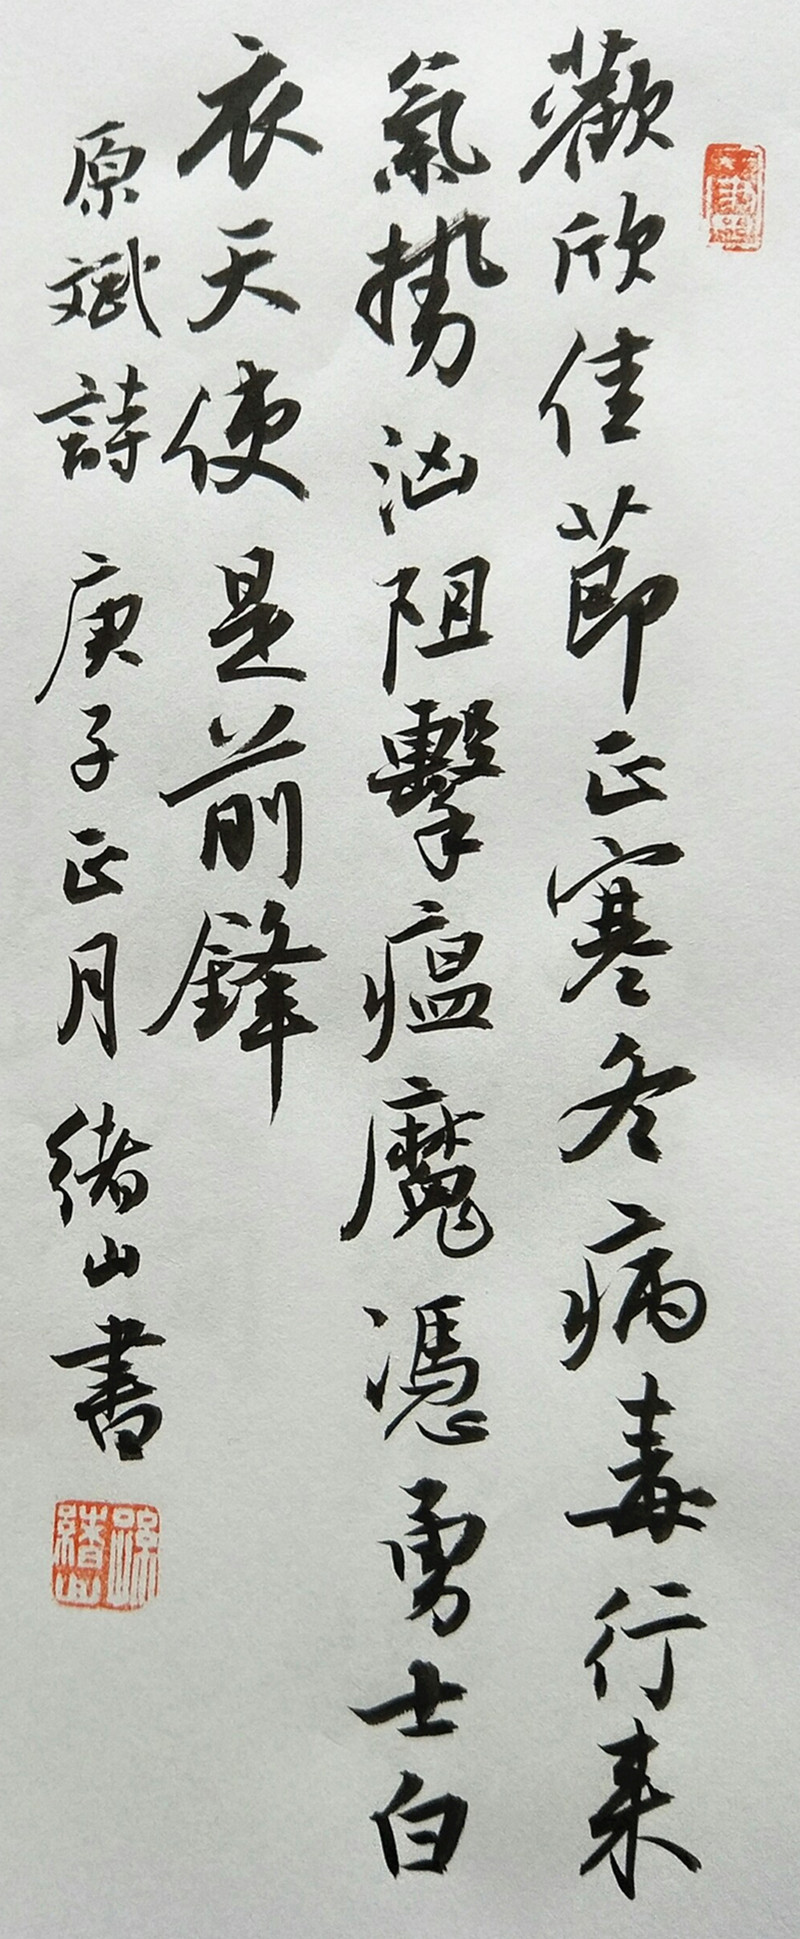 歡欣佳節正寒冬病毒行来
氣勢汹阻擊瘟魔憑勇士白
衣天使是前鋒
原斌詩 庚子正月 绪山書